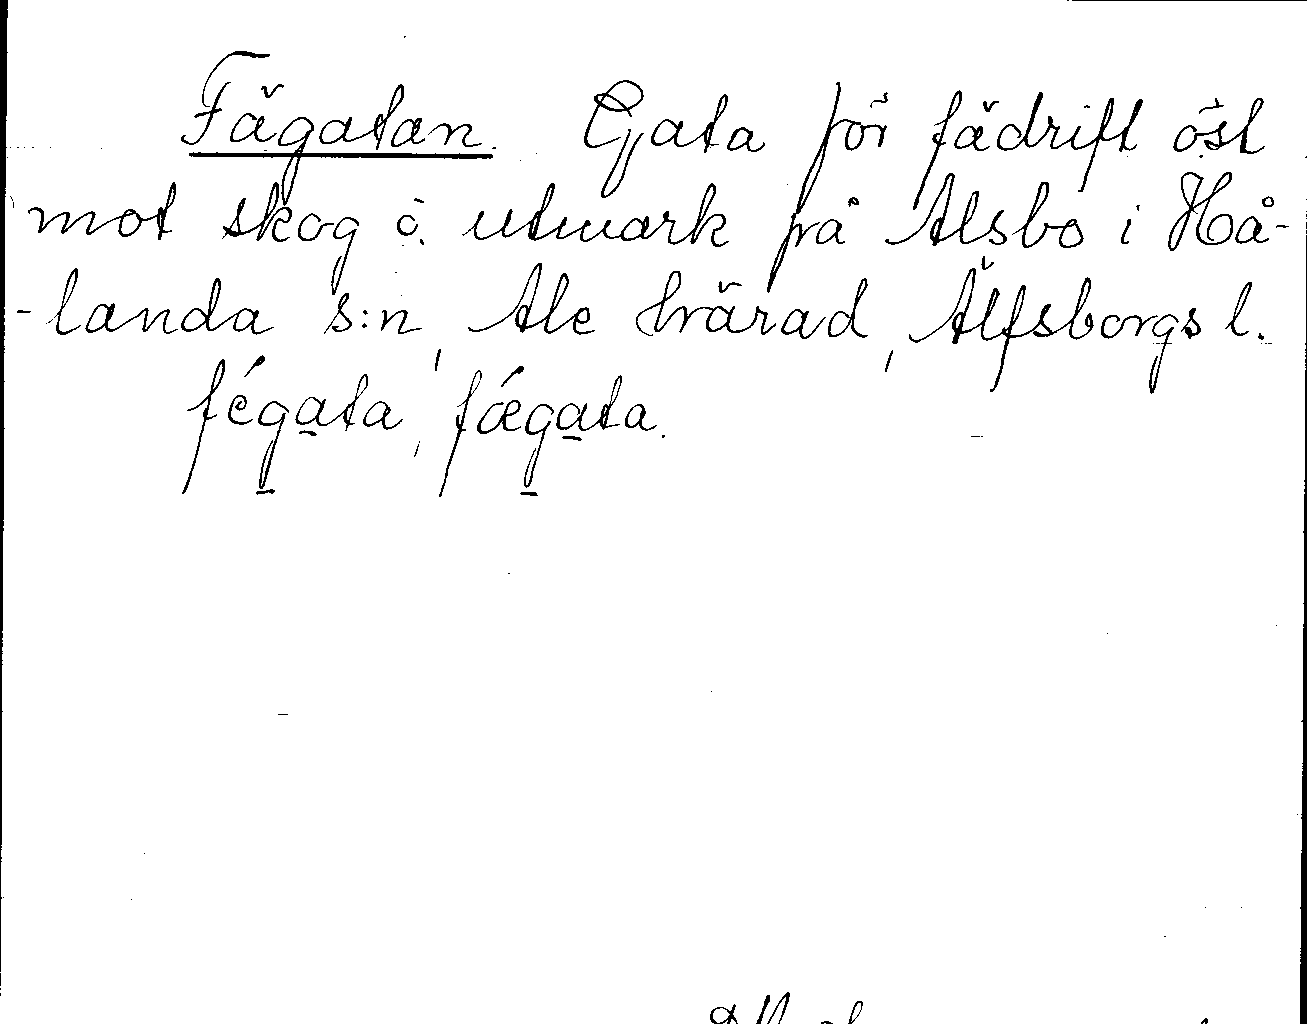 Fägatan. Gata för fädrift öst
mot skog o. utmark frå Alsbo i Hå-
-landa s:n, Ale härad, Älfsborgs l.
fégata, fǽgata.